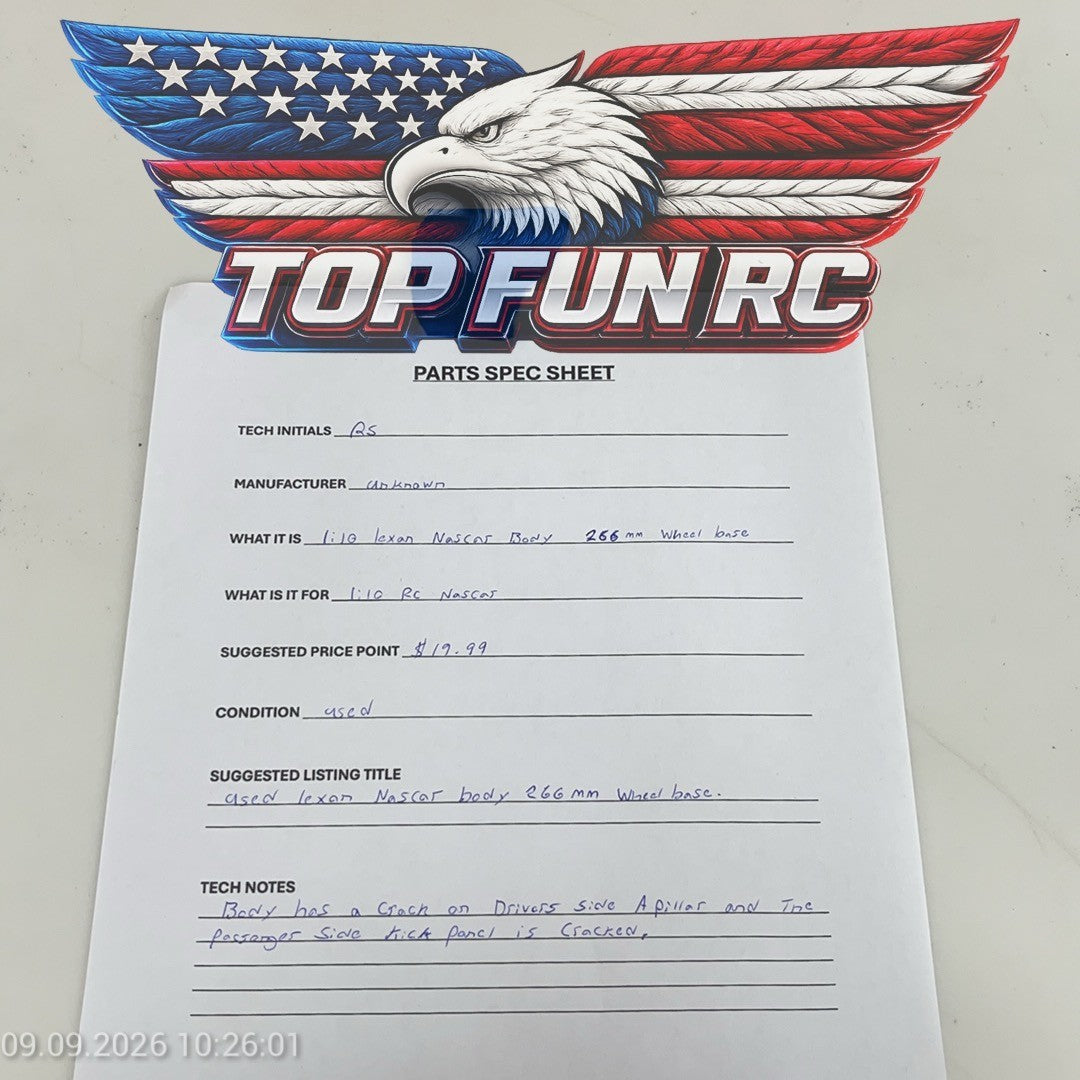 TOP FUN RC
PARTS SPEC SHEET
TECH INITIALS RS
MANUFACTURER unknown
WHAT IT IS 1:10 lexan Nascar Body 266 mm Wheel base
WHAT IS IT FOR 1:10 Rc Nascar
SUGGESTED PRICE POINT $19.99
CONDITION used
SUGGESTED LISTING TITLE
used lexan Nascar body 266 mm Wheel base.
TECH NOTES
Body has a Crack on Drivers Side A pillar and The
passenger Side Kick panel is Cracked.
09.09.2026 10:26:01